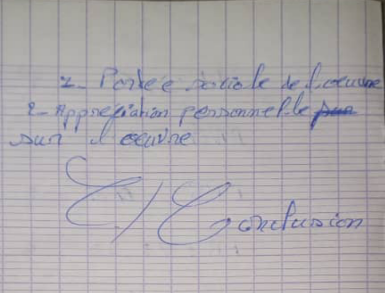 1- Portée sociale de l'oeuvre
2- Appréciation personnelle
sur l'oeuvre
C/ Conclusion